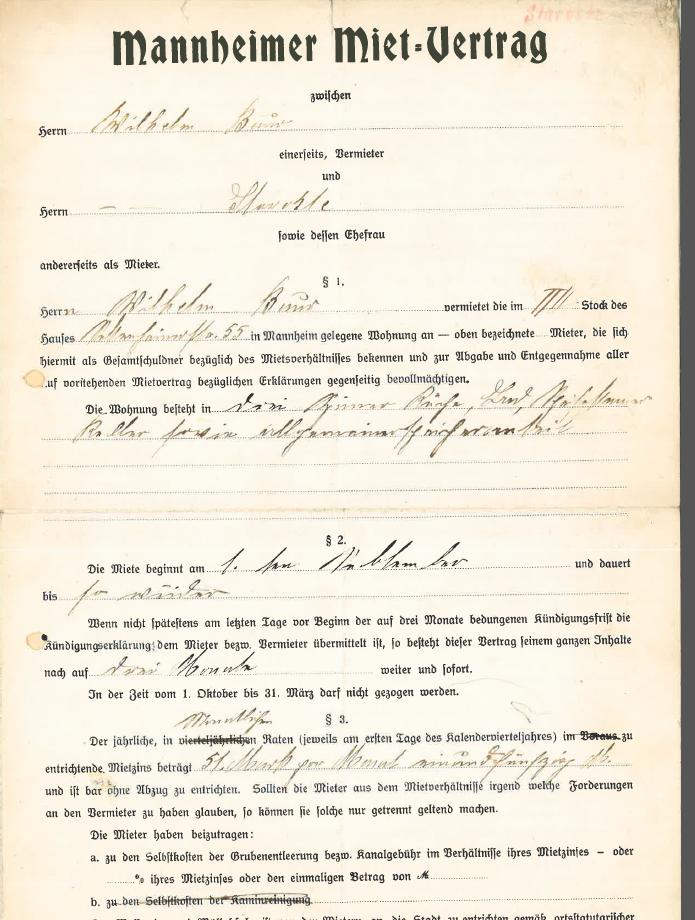 Mannheimer Miet-Vertrag
zwischen
Herrn Wilhelm Baur
einerseits, Vermieter
und
Herrn
sowie dessen Ehefrau
andererseits als Mieter.
§ 1.
Herrn Wilhelm Baur vermietet die im IIII Stock des
Hauses 55 in Mannheim gelegene Wohnung an — oben bezeichnete Mieter, die sich
hiermit als Gesamtschuldner bezüglich des Mietsverhältnisses bekennen und zur Abgabe und Entgegennahme aller
auf vorstehenden Mietvertrag bezüglichen Erklärungen gegenseitig bevollmächtigen.
Die Wohnung besteht in drei Zimmer Küche, Bad,
Keller sowie
§ 2.
Die Miete beginnt am 1. ten und dauert
bis so weiter
Wenn nicht spätestens am letzten Tage vor Beginn der auf drei Monate bedungenen Kündigungsfrist die
Kündigungserklärung dem Mieter bezw. Vermieter übermittelt ist, so besteht dieser Vertrag seinem ganzen Inhalte
nach auf drei Monate weiter und sofort.
In der Zeit vom 1. Oktober bis 31. März darf nicht gezogen werden.
Monatlichen
§ 3.
Der jährliche, in vierteljährlichen Raten (jeweils am ersten Tage des Kalendervierteljahres) im Voraus zu
entrichtende Mietzins beträgt 51 Mark pro Monat einundfünfzig M.
und ist bar ohne Abzug zu entrichten. Sollten die Mieter aus dem Mietverhältnisse irgend welche Forderungen
an den Vermieter zu haben glauben, so können sie solche nur getrennt geltend machen.
Die Mieter haben beizutragen:
a. zu den Selbstkosten der Grubenentleerung bezw. Kanalgebühr im Verhältnisse ihres Mietzinses – oder
% ihres Mietzinses oder den einmaligen Betrag von M
b. zu den Selbstkosten der Kaminreinigung